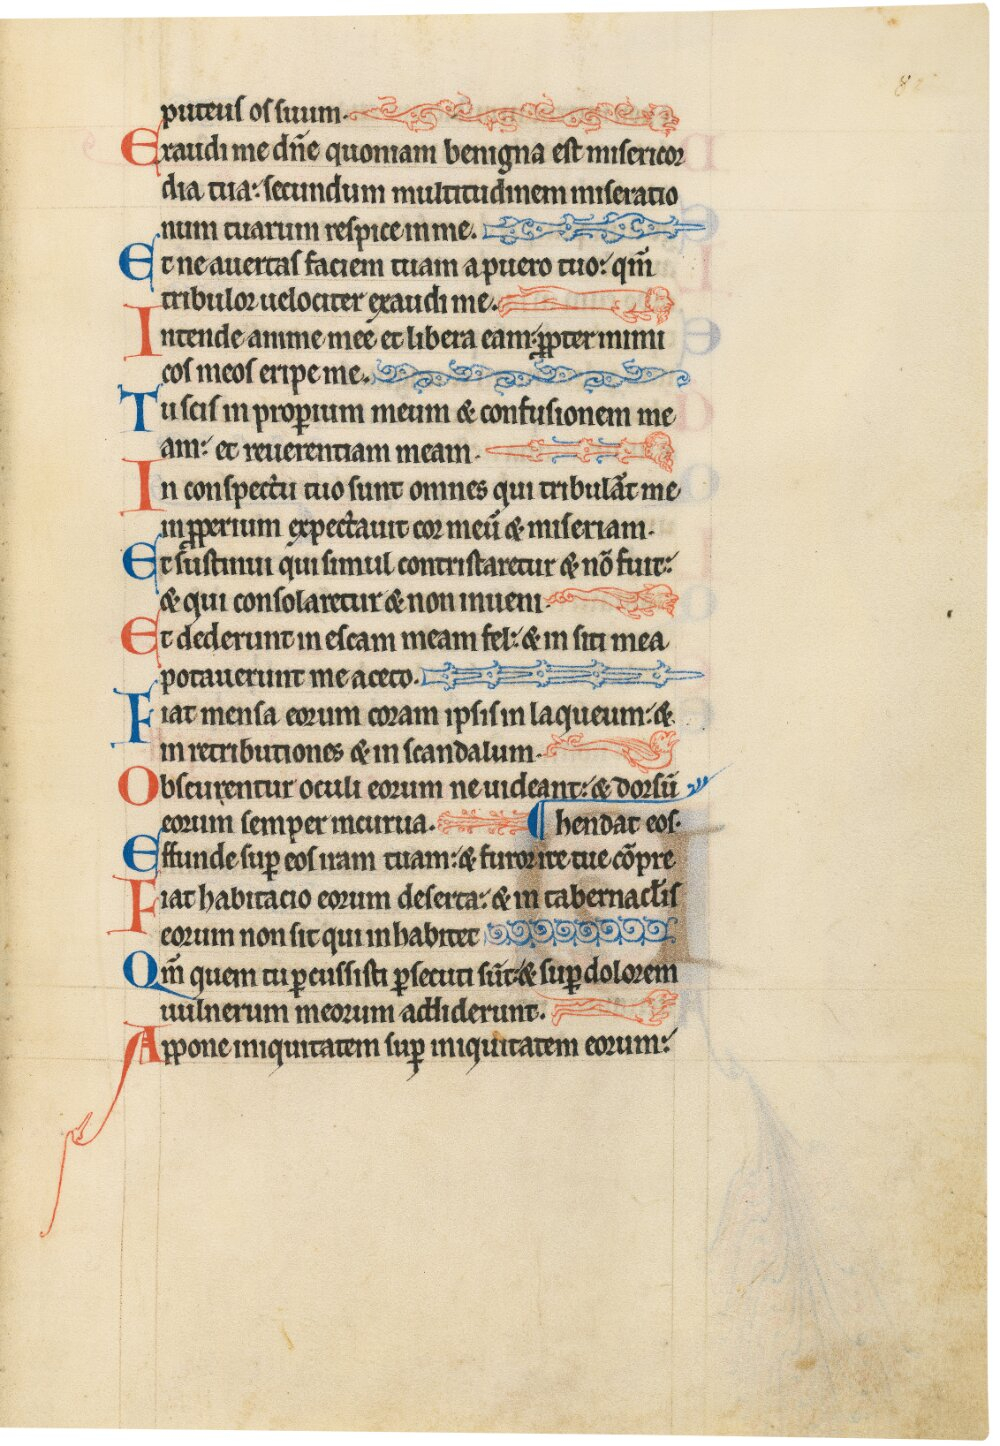 puteus os suum.
Exaudi me dn̄e quoniam benigna est misericor
dia tua: secundum multitudinem miseratio
num tuarum respice in me.
Et ne auertas faciem tuam a puero tuo: qm̄
tribulor uelociter exaudi me.
Intende anime mee et libera eam: ꝓpter inimi
cos meos eripe me.
Tu scis inproꝑium meum & confusionem me
am: et reuerentiam meam.
In conspectu tuo sunt omnes qui tribulāt me
inꝓperium expectauit cor meū & miseriam.
Et sustinui qui simul contristaretur & nō fuit:
& qui consolaretur & non inueni.
Et dederunt in escam meam fel: & in siti mea
potauerunt me aceto.
Fiat mensa eorum coram ipsis in laqueum: &
in retributiones & in scandalum.
Obscurentur oculi eorum ne uideant: & dorsū
eorum semper incurua. hendat eos.
Effunde suꝑ eos iram tuam: & furor ire tue cōpre
Fiat habitacio eorum deserta: & in tabernacl̄is
eorum non sit qui inhabitet
Qm̄ quem tu ꝑcussisti ꝑsecuti sūt: & suꝑ dolorem
uulnerum meorum addiderunt.
Appone iniquitatem suꝑ iniquitatem eorum: